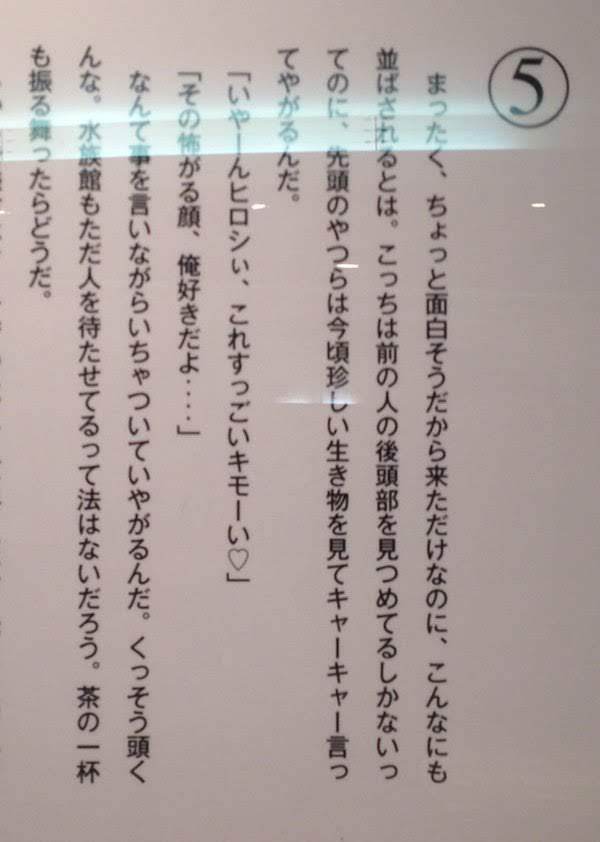 ⑤
まったく、ちょっと面白そうだから来ただけなのに、こんなにも
並ばされるとは。こっちは前の人の後頭部を見つめてるしかないっ
てのに、先頭のやつらは今頃珍しい生き物を見てキャーキャー言っ
てやがるんだ。
「いやーんヒロシぃ、これすっごいキモーい♡」
「その怖がる顔、俺好きだよ‥‥」
なんて事を言いながらいちゃついていやがるんだ。くっそう頭く
んな。水族館もただ人を待たせてるって法はないだろう。茶の一杯
も振る舞ったらどうだ。